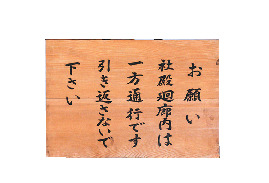 お願い
社殿廻廊内は
一方通行です
引き返さないで
下さい